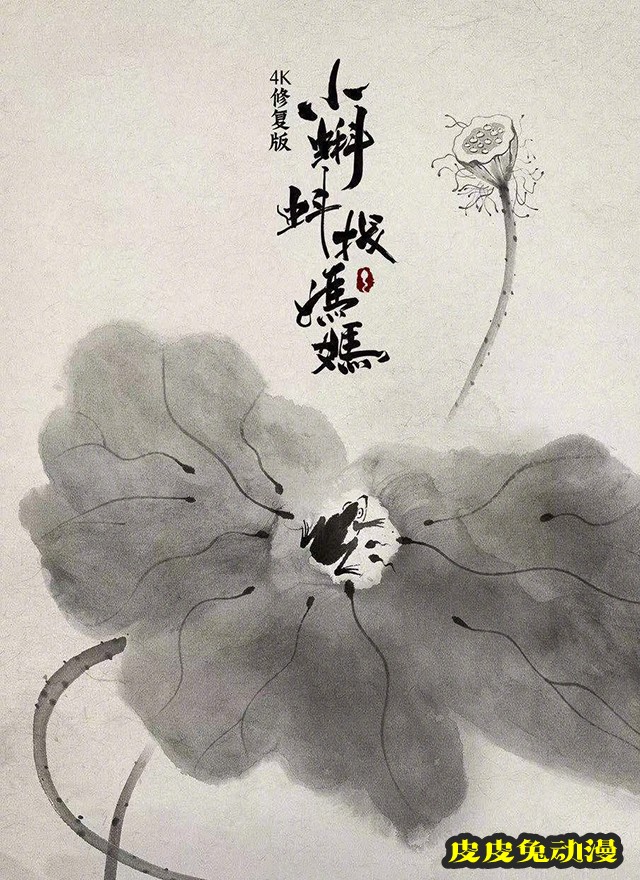 4K修复版
小蝌蚪找媽媽
皮皮兔动漫